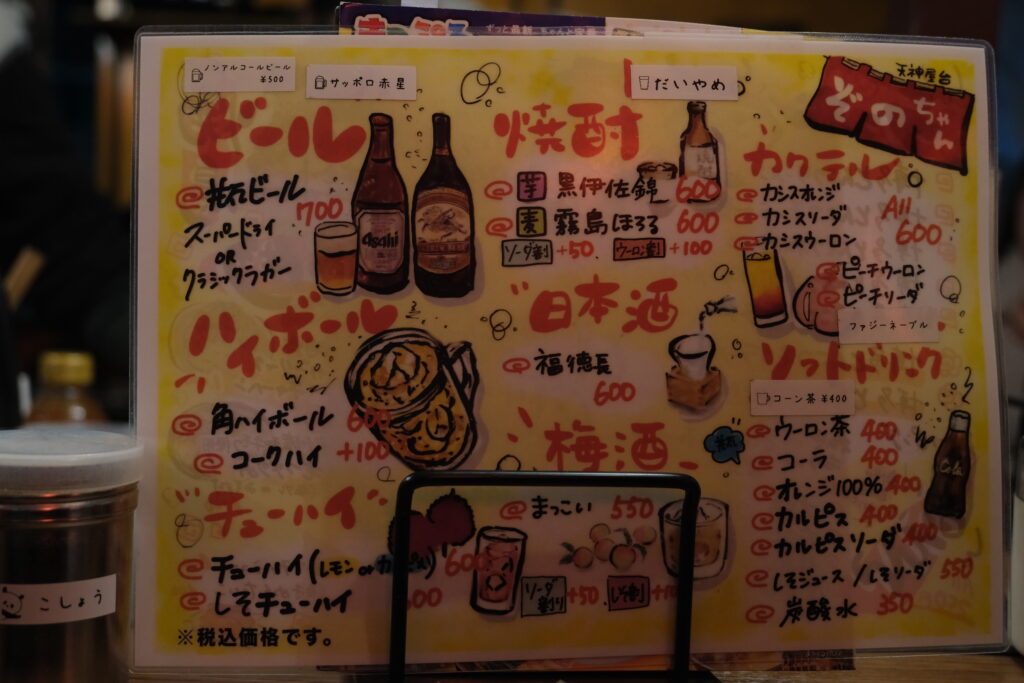 ノンアルコールビール
¥500
サッポロ赤星
だいやめ
天神屋台
ぞのちゃん
ビール
@ 瓶ビール
700
スーパードライ
OR
クラシックラガー
Asahi
ハイボール
@ 角ハイボール 600
@ コークハイ +100
チューハイ
@ チューハイ(レモン or カルピス) 600
@ しそチューハイ 600
※税込価格です。
焼酎
@ 芋 黒伊佐錦 600
@ 麦 霧島ほろる 600
ソーダ割 +50. ウーロン割 +100
日本酒
@ 福徳長
600
梅酒
@ まっこい 550
ソーダ割り +50
カクテル
@ カシスオレンジ
@ カシスソーダ
@ カシスウーロン
All
600
@ ピーチウーロン
@ ピーチソーダ
ファジーネーブル
ソフトドリンク
コーン茶 ¥400
@ ウーロン茶 400
@ コーラ 400
@ オレンジ100% 400
@ カルピス 400
@ カルピスソーダ 400
@ しそジュース / しそソーダ 550
@ 炭酸水 350
こしょう